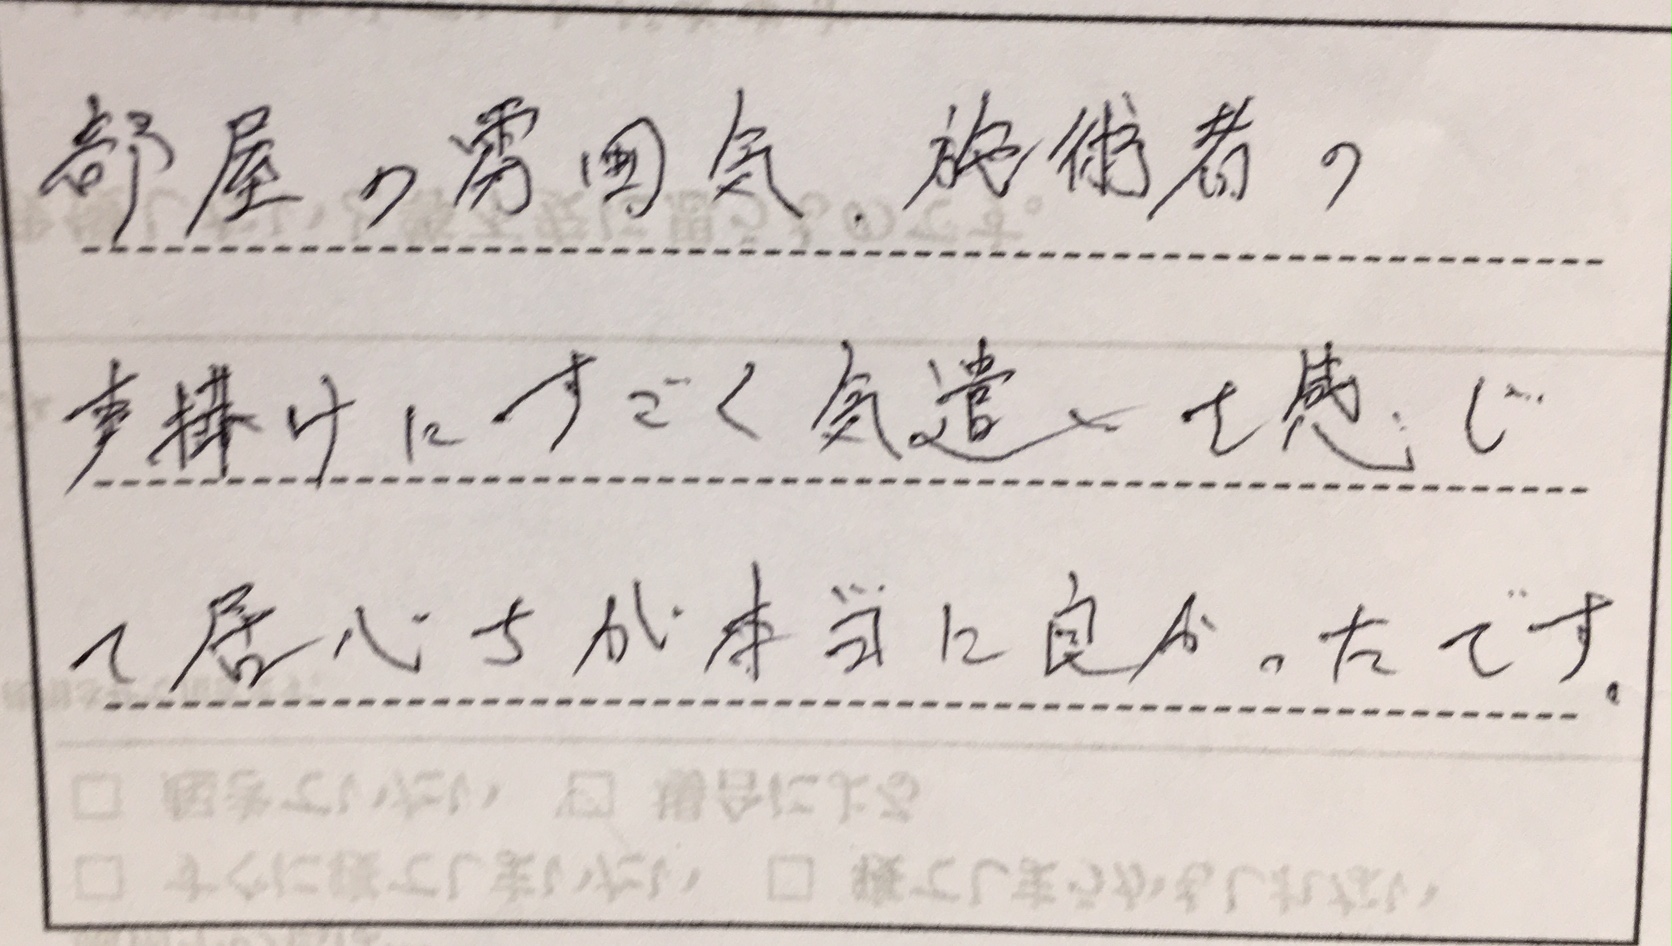 部屋の雰囲気、施術者の
声掛けにすごく気遣いを感じ
て居心ちが本当に良かったです。